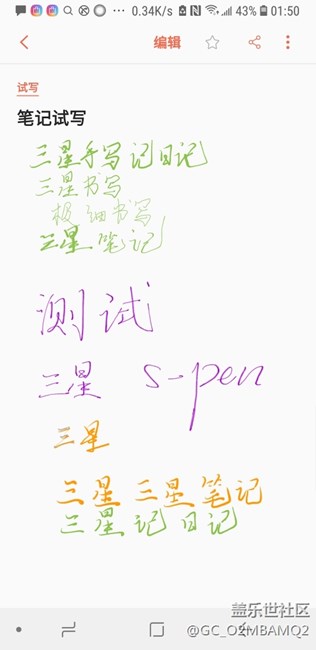 0.34K/s 43% 01:50
编辑
试写
笔记试写
三星手写记日记
三星书写
极细书写
三星笔记
测试
三星 s-pen
三星
三星 三星笔记
三星记日记
盖乐世社区
@GC_O2MBAMQ2